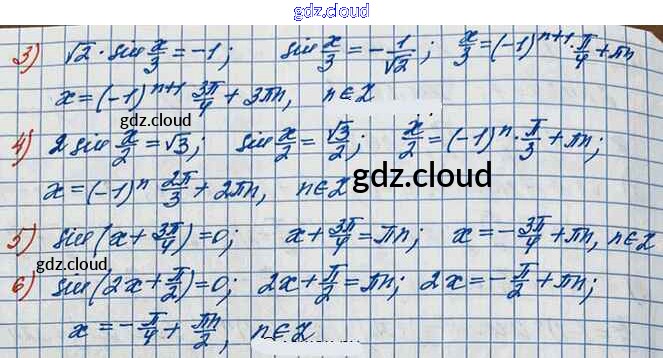 gdz.cloud
gdz.cloud
3) √2 · sin x/3 = -1; sin x/3 = -1/√2; x/3 = (-1)^(n+1) · π/4 + πn
x = (-1)^(n+1) 3π/4 + 3πn, n∈Z
gdz.cloud
4) 2 sin x/2 = √3; sin x/2 = √3/2; x/2 = (-1)^n · π/3 + πn;
x = (-1)^n 2π/3 + 2πn, n∈Z
gdz.cloud
5) sin(x + 3π/4) = 0; x + 3π/4 = πn; x = -3π/4 + πn, n∈Z
gdz.cloud
6) sin(2x + π/2) = 0; 2x + π/2 = πn; 2x = -π/2 + πn;
x = -π/4 + πn/2, n∈Z